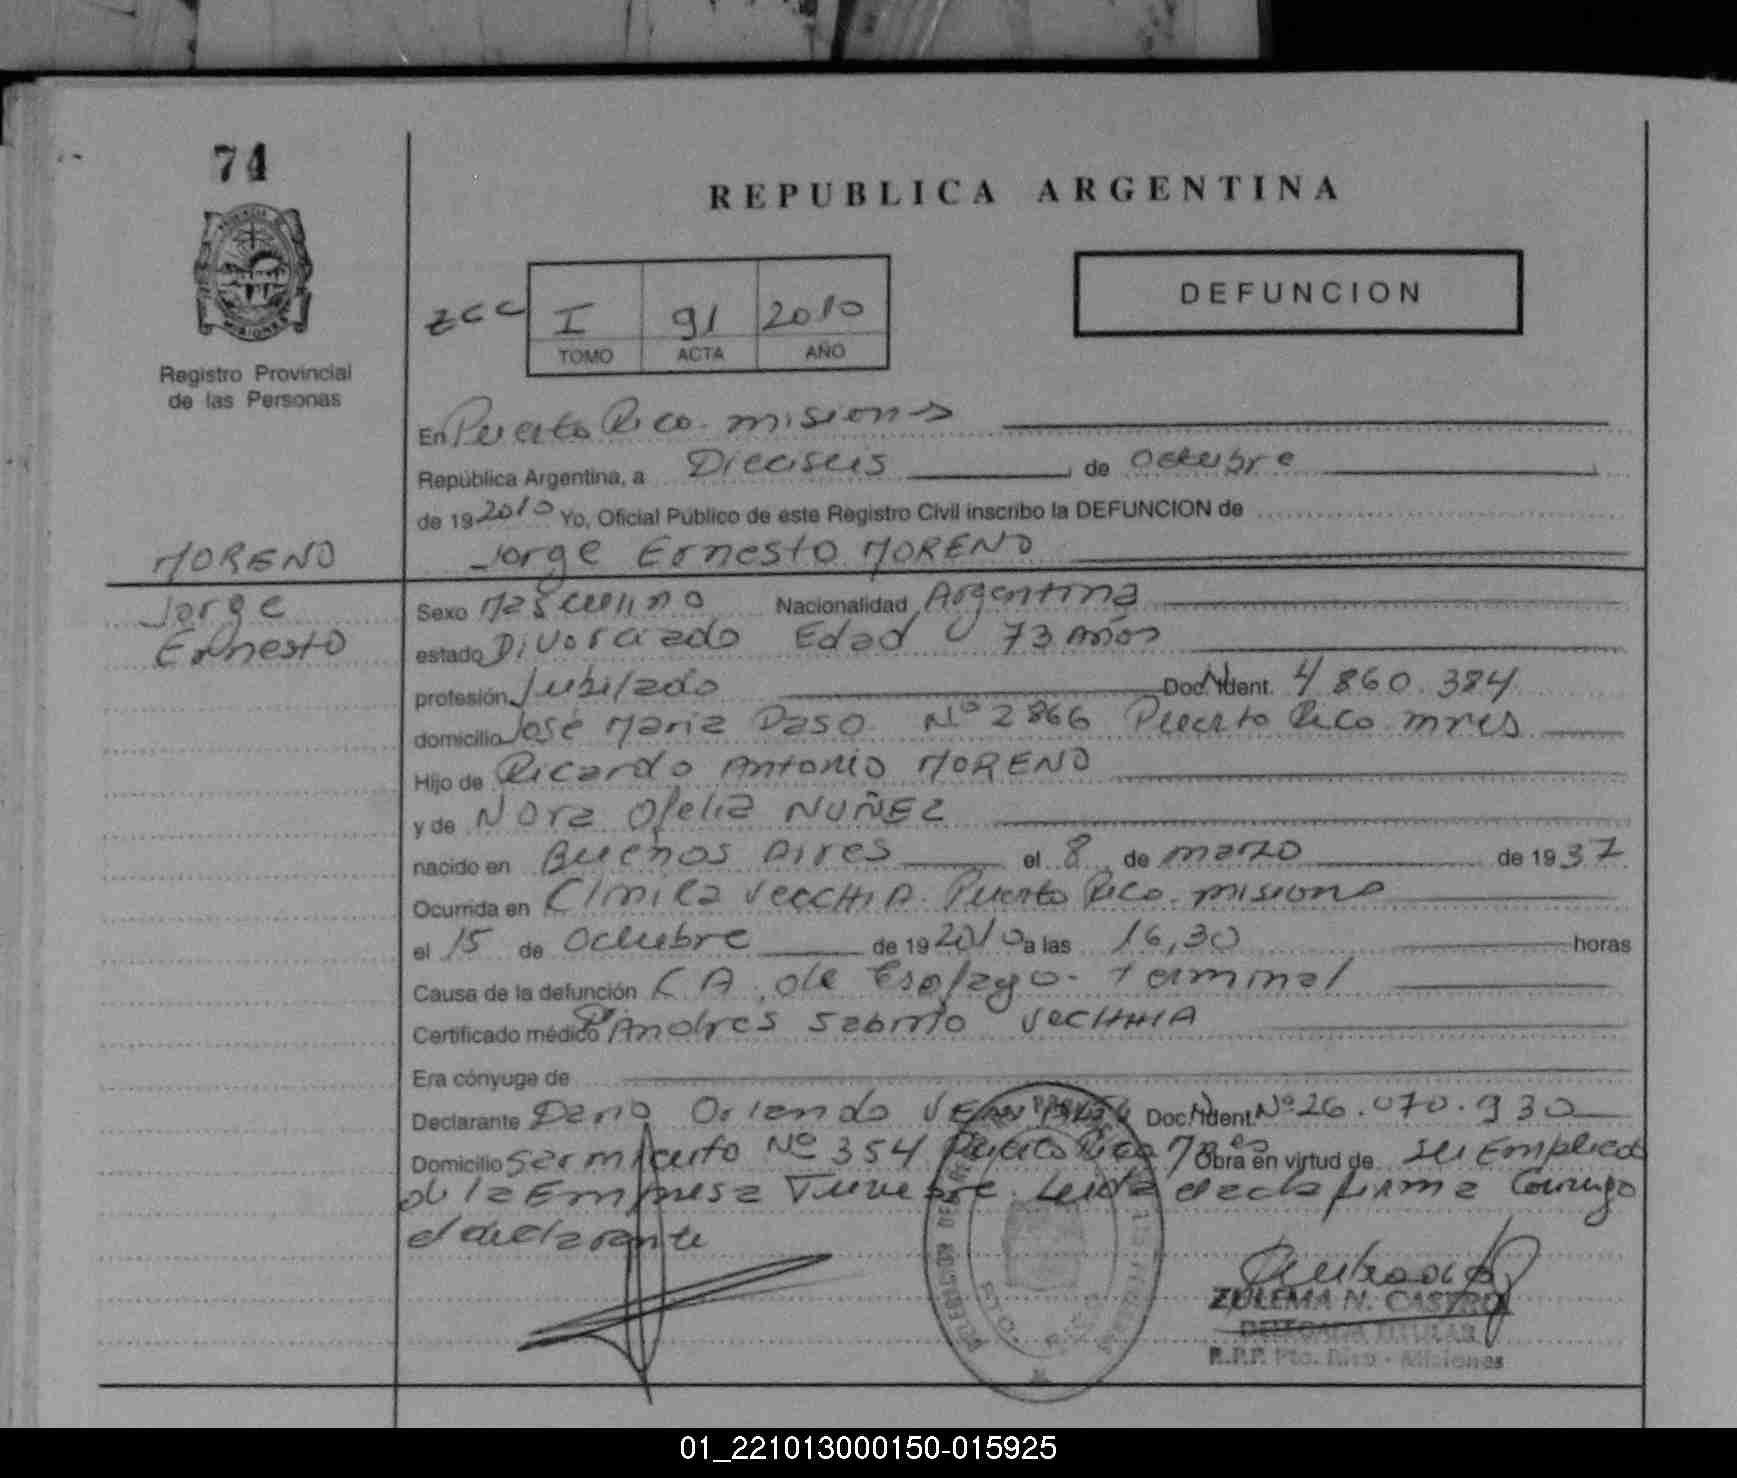 74
REPUBLICA ARGENTINA
DEFUNCION
I 91 2010
TOMO ACTA AÑO
MISIONES
Registro Provincial
de las Personas
En Puerto Rico. misiones
República Argentina, a Dieciseis de Octubre
de 19 2010 Yo, Oficial Público de este Registro Civil inscribo la DEFUNCION de
MORENO
Jorge
Ernesto
Jorge Ernesto MORENO
Sexo Masculino Nacionalidad Argentina
estado Divorciado Edad 73 Años
profesión Jubilado Doc. N. Ident. 4 860. 384
domicilio José Maria Paso Nº 2866 Puerto Rico. mnes
Hijo de Ricardo Antonio MORENO
y de Nora Ofelia NUÑEZ
nacido en Buenos Aires el 8 de marzo de 19 37
Ocurrida en Clinica VECCHIA. Puerto Rico. misiones
el 15 de Octubre de 19 2010 a las 16,30 horas
Causa de la defunción CA. de Esofago. Terminal
Certificado médico Dr Andres Sabino VECCHIA
Era cónyuge de
Declarante Dario Orlando Doc. N. Ident. Nº 26.070.930
Domicilio Sarmiento Nº 354 Puerto Rico Mnes Obra en virtud de ser Emplead
de la Empresa Funebre. Leida el acta firma Conmigo
el declarante
ZULEMA N. CASTRO
DELEGADA TITULAR
R.P.P. Pto. Rico - Misiones
01_221013000150-015925